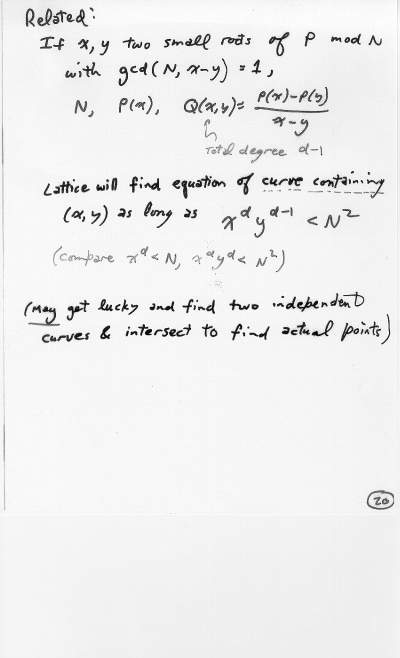 Related:
If x, y two small roots of P mod N
with gcd(N, x-y) = 1,
N, P(x), Q(x,y) = P(x)-P(y) / x-y
Total degree d-1
Lattice will find equation of curve containing
(x, y) as long as x^d y^{d-1} < N^2
(compare x^d < N, x^d y^d < N^2)
(May get lucky and find two independent
curves & intersect to find actual points)
20